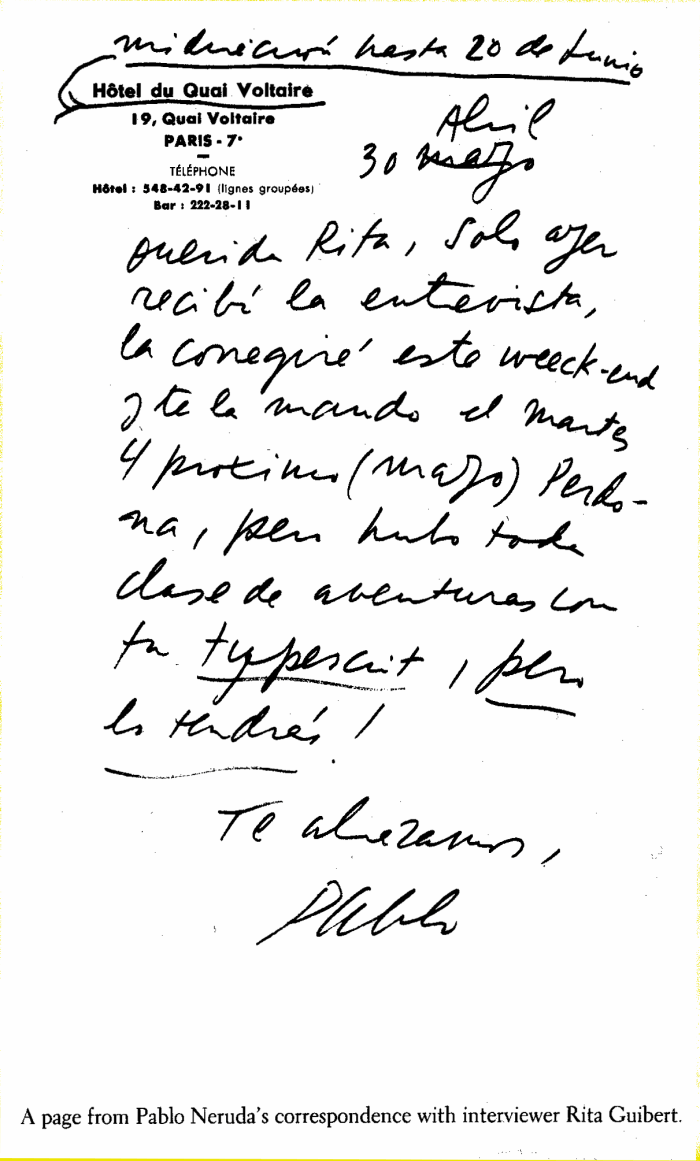 mi dirección hasta 20 de Junio
Hôtel du Quai Voltaire
19, Quai Voltaire
PARIS - 7e
TÉLÉPHONE
Hôtel : 548-42-91 (lignes groupées)
Bar : 222-28-11
Abril
30 mayo
Querida Rita, solo ayer
recibí la entrevista,
la corregiré este weeck-end
y te la mando el martes
4 proximo (mayo) Perdo-
na, pero hubo toda
clase de aventuras con
tu typescrit, pero
lo tendrás!
Te abrazamos,
Pablo
A page from Pablo Neruda's correspondence with interviewer Rita Guibert.